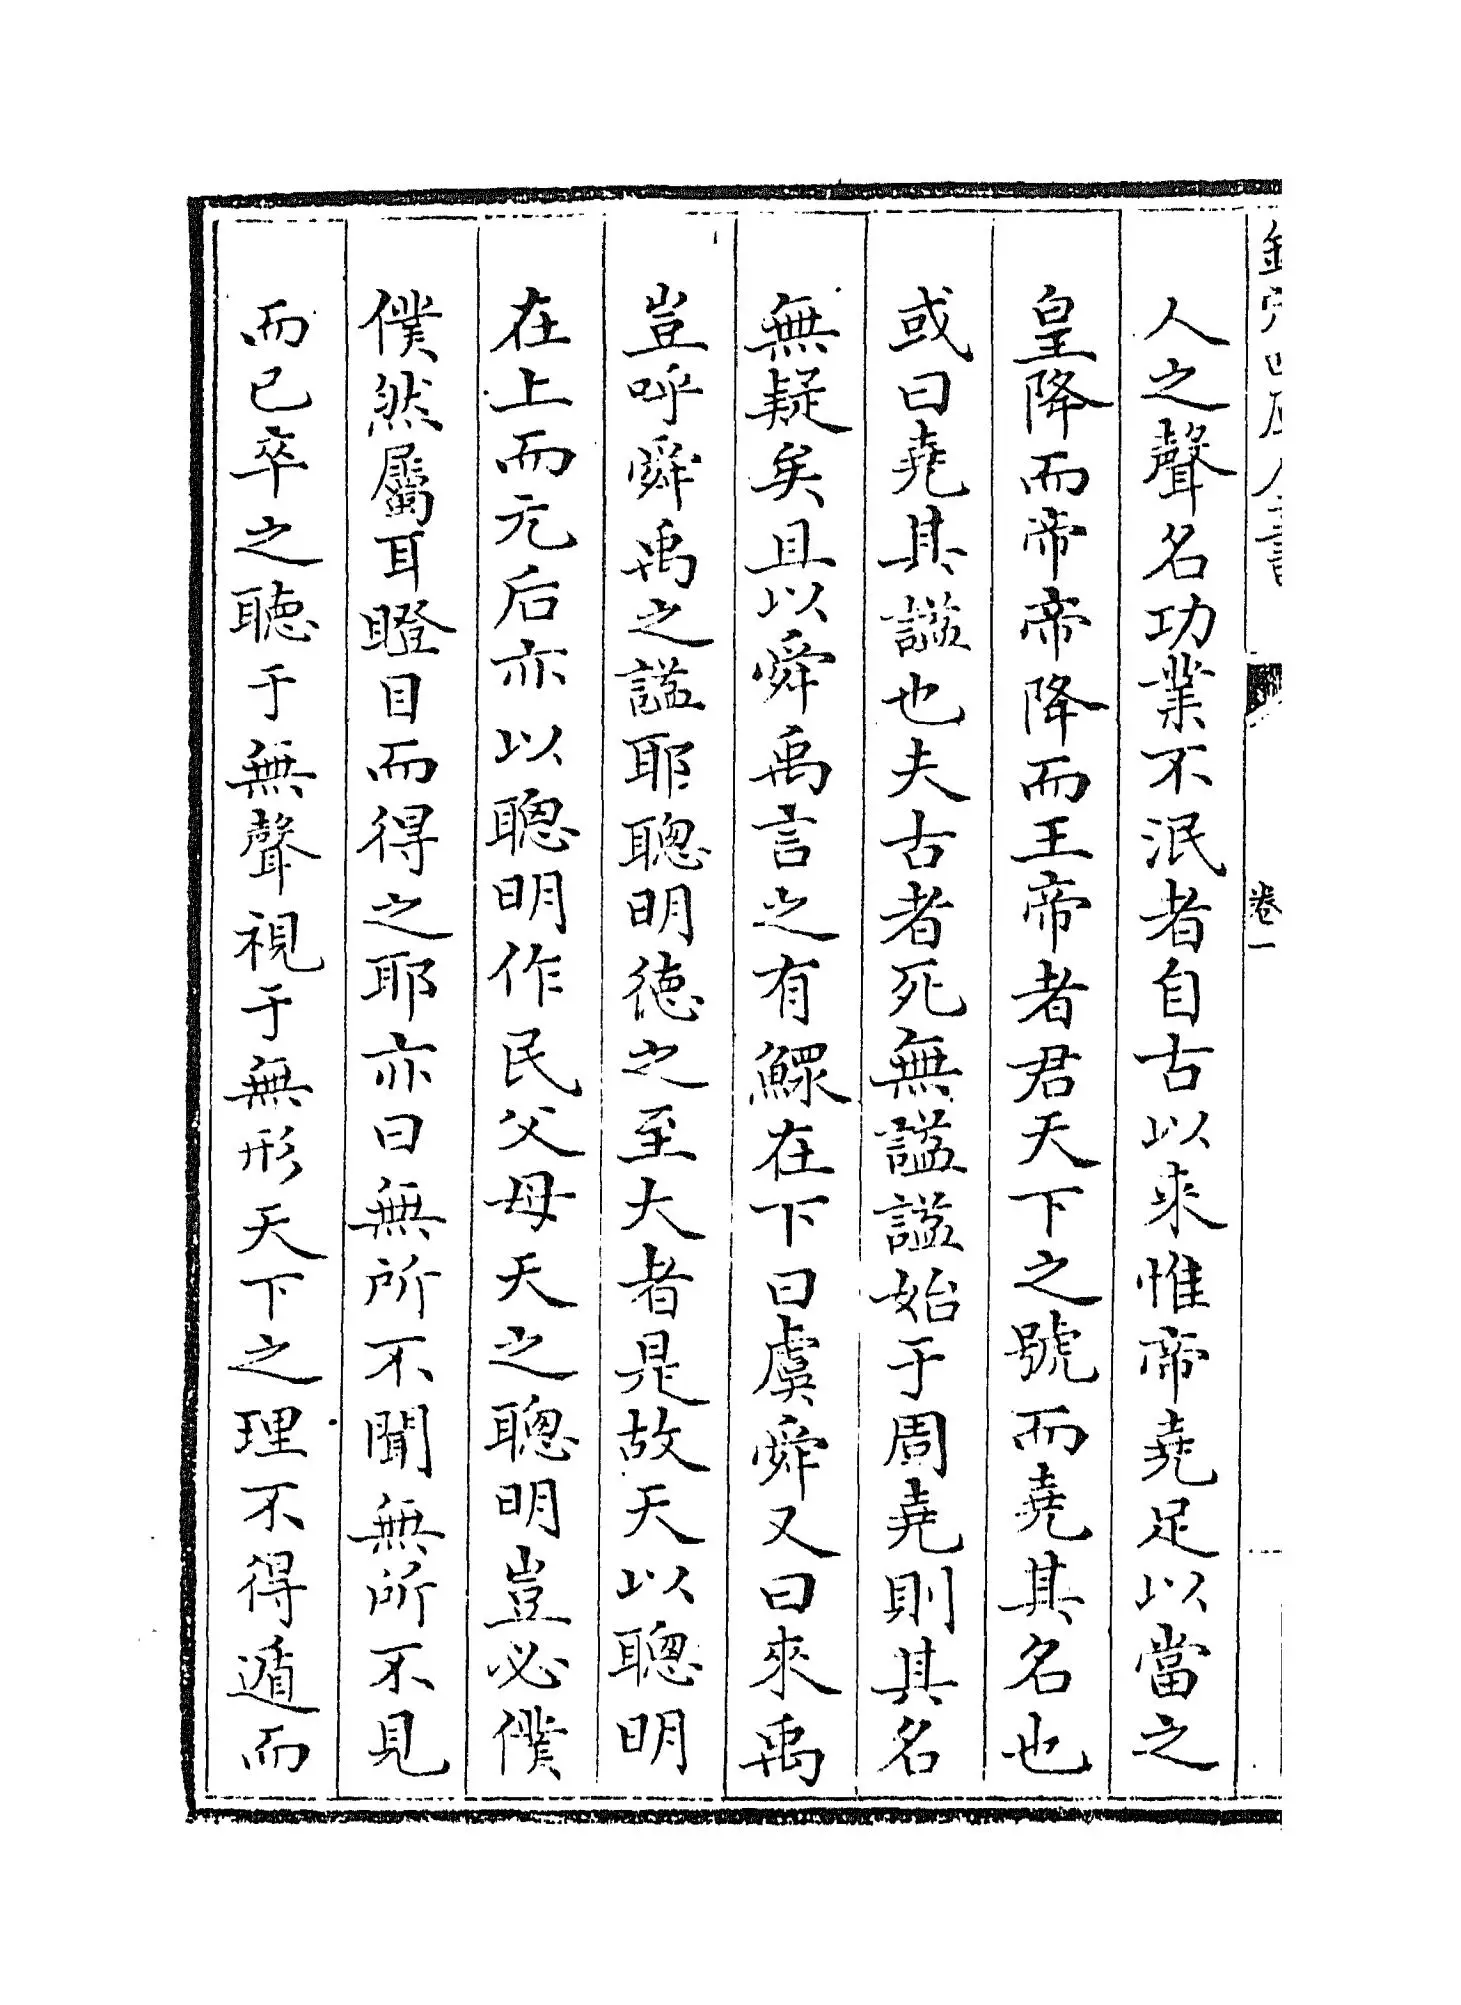 欽定四庫全書
卷一
人之聲名功業不泯者自古以來惟帝堯足以當之
皇降而帝帝降而王帝者君天下之號而堯其名也
或曰堯其諡也夫古者死無諡諡始于周堯則其名
無疑矣且以舜禹言之有鰥在下曰虞舜又曰來禹
豈呼舜禹之諡耶聰明徳之至大者是故天以聰明
在上而元后亦以聰明作民父母天之聰明豈必僕
僕然屬耳瞪目而得之耶亦曰無所不聞無所不見
而已卒之聽于無聲視于無形天下之理不得遁而